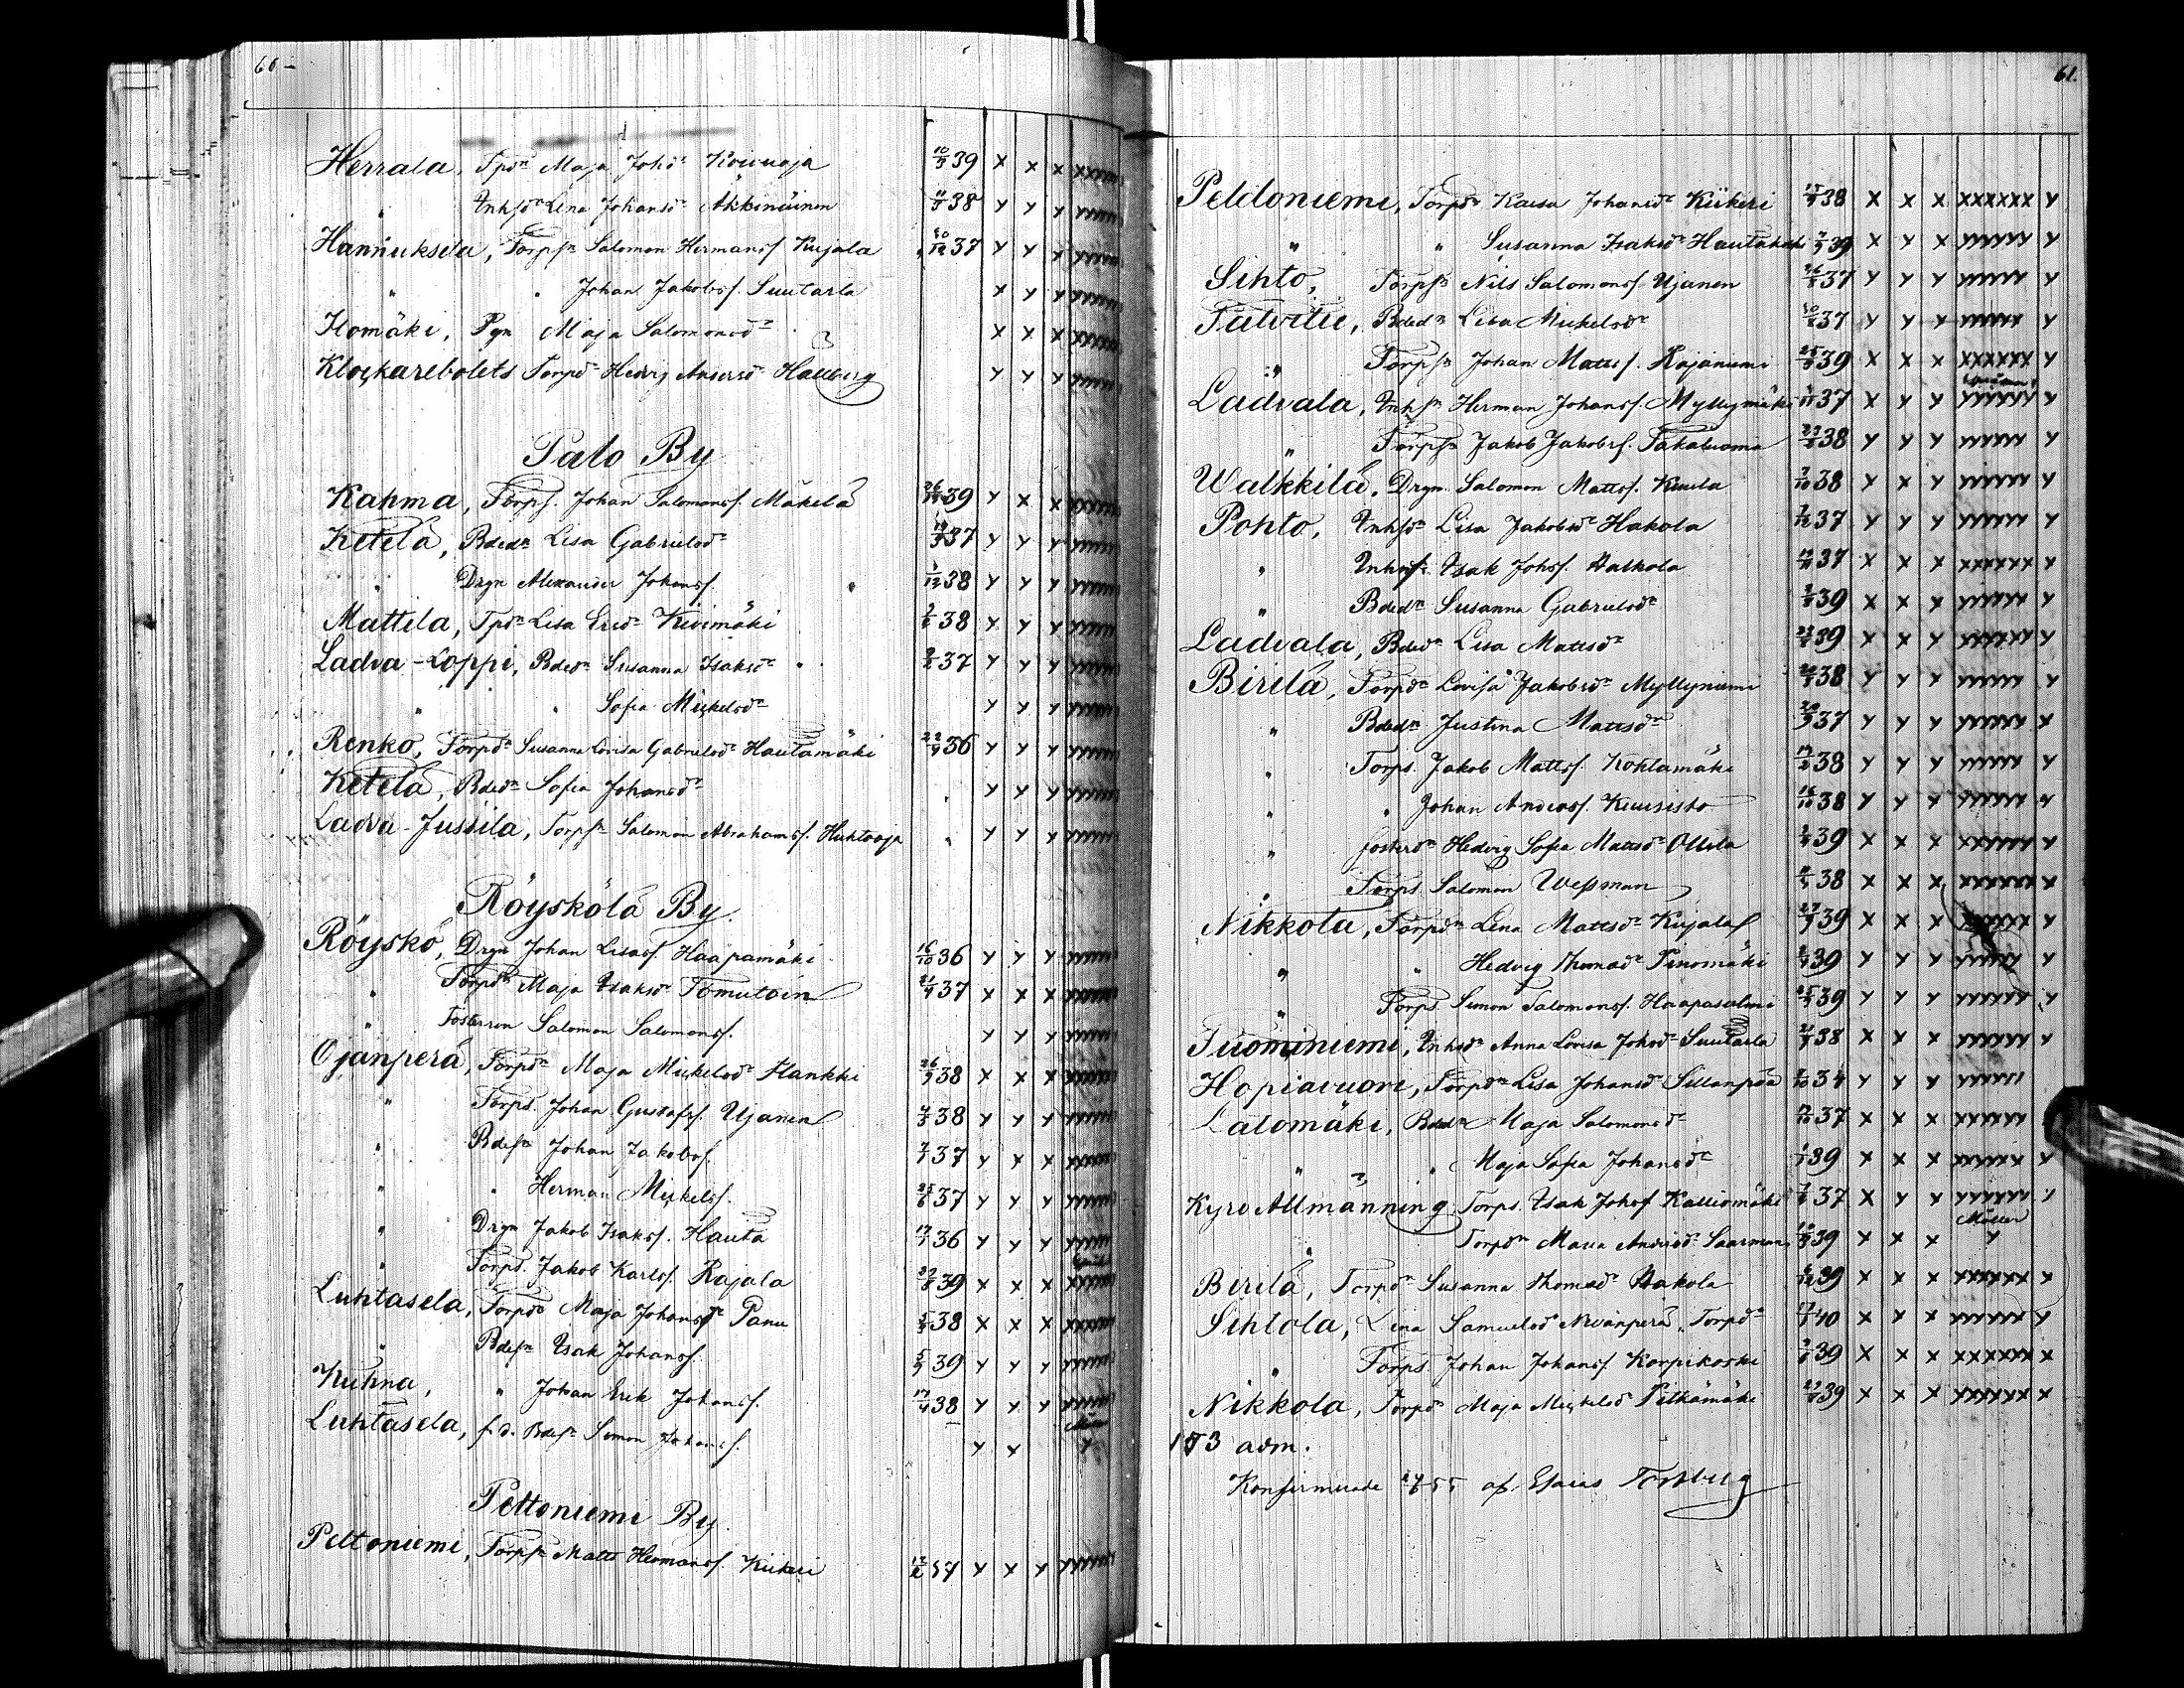 60
Herrala, Tpdr Maja Johdr Koivuoja 10/5 39 x x x xxxxx
" Inhsdr Lena Johansdr Akkinäinen 11/5 38 y y y yyyyy
Hannuksela, Torpsn Salomon Hermansf. Kujala 30/12 37 y y y yyyyy
" " Johan Jakobsf. Suutarla x y y yyyyy
Ilomäki, Pgn Maja Salomonsdr x x x xxxxx
Klockarebolets Torpdr Hedvig Andersdr Hallberg y y y yyyyy
Palo By
Kahma, Torps. Johan Salomonsf. Mäkelä 39 y x x xxxxx
Ketelä, Bdedr Lisa Gabrielsdr 37 y y y yyyyy
" Drgn Alexander Johansf. 1/12 38 y y y yyyyy
Mattila, Tpdr Lisa Ericdr Kivimäki 38 y y y yyyyy
Ladva-Loppi, Bdedr Susanna Isaksdr 37 y y y yyyyy
" " Sofia Mickelsdr y y y yyyyy
Renko, Torpdr Susanna Lovisa Gabrielsdr Hautamäki 22/9 36 y y y yyyyy
Ketelä, Bdedr Sofia Johansdr y y y yyyyy
Ladva-Jussila, Torpsn Salomon Abrahamsf. Huhtaoja y y y yyyyy
Röyskölä By.
Röyskö, Drgn Johan Lisasf. Haapamäki 16/10 36 y y y yyyyy
" Torpdr Maja Isaksdr Tomutoin 21/4 37 x x x xxxxx
" Fosterson Salomon Salomonsf. y y y yyyyy
Ojanperä, Torpdr Maja Mickelsdr Hankki 26/9 38 x x x xxxxx
" Torps. Johan Gustafsf. Ujanen 38 y y y yyyyy
" Bdesn Johan Jakobsf. 37 y x x xxxxx
" " Herman Mickelsf. 25/6 37 y y y yyyyy
" Drgn Jakob Isaksf. Hauta 36 y y y yyyyy
" Torps. Jakob Karlsf. Rajala 39 x x x xxxxx
Luhtasela, Torpdr Maja Johansdr Panu 38 x x x xxxxx
" Bdesn Isak Johansf. 39 y y y yyyyy
Kuhna, " Johan Erik Johansf. 17/4 38 y x y yyyyy
Luhtasela, f.d. Bdesn Simon Johansf. y x y
Peltoniemi By.
Peltoniemi, Torpsn Matts Hermansf. Kiikeri 37 x x y yyyyy
61.
Peldoniemi, Torpdr Kaisa Johansdr Kiikeri 38 x x x xxxxxx y
" " Susanna Isaksdr Hautakoski 39 x y x yyyyyy y
Sihto, Torpsn Nils Salomonsf. Ujanen 26/8 37 y y y yyyyyy y
Talvitie, Bdedr Lisa Mickelsdr 37 y y y yyyyyy y
" Torpsn Johan Mattsf. Rajaniemi 39 x x x xxxxxx y
Ladvala, Inhsn Herman Johansf. Myllymäki 37 x y y yyyyyy y
" Torpsn Jakob Jakobsf. Takaluoma 38 y y y yyyyyy y
Walkkila, Drgn Salomon Mattsf. Knuila 38 y x y yyyyyy y
Pohto, Inhsdr Lisa Jakobsdr Hakola 37 y y y yyyyyy y
" Inhsf. Isak Johsf. Haskola 37 x x x xxxxxx y
" Bdedr Susanna Gabrielsdr 39 x x x yyyyyy y
Ladvala, Bdedr Lisa Mattsdr 39 x x x xxxxxx y
Birilä, Torpdr Lovisa Jakobsdr Myllyniemi 38 y y y yyyyyy y
" Bdedr Justina Mattsdr 37 y y y yyyyyy x
" Torps. Jakob Mattsf. Kohtamäki 38 y y y yyyyyy y
" " Johan Andersf. Kuusisto 16/10 38 y y y yyyyyy y
" fosterdr Hedvig Sofia Mattsdr Ollila 39 x x x xxxxxx y
" Torps Salomon Wessman 38 x x x xxxxxx x
Nikkola, Torpdr Lena Mattsdr Kujala 39 x x x xxxxxx y
" " Hedvig Thomasdr Pinomäki 39 y y y yyyyyy y
" Torps. Simon Salomonsf. Haapasalmi 39 y y y yyyyyy y
Tuominiemi, Inhsdr Anna Lovisa Johsdr Suutarla 38 x x x yyyyyy y
Hopiavuori, Torpdr Lisa Johansdr Sillanpää 34 y y y yyyyyy
Latomäki, Bdedr Maja Salomonsdr 37 x x x xxxxxx
" " Maja Sofia Johansdr 39 x x x xxxxxx
Kyrö Allmänning, Torps. Isak Johsf Kalliomäki 37 x y x yyyyyy
" Torpdr Maria Andersdr Saarman 39 x x x y
Birilä, Torpdr Susanna Thomasdr Hakola 39 x x x xxxxxx x
Sihtola, Lena Samuelsdr Nevanperä, Torpdr 40 x x x xxxxxx y
" Torps. Johan Johansf. Korpikoski 39 x x x xxxxxx x
Nikkola, Torpdr Maja Mickelsdr Pitkämäki 39 x x x xxxxxx x
153 adm.
Konfirmerade 55 af Esaias Forsberg